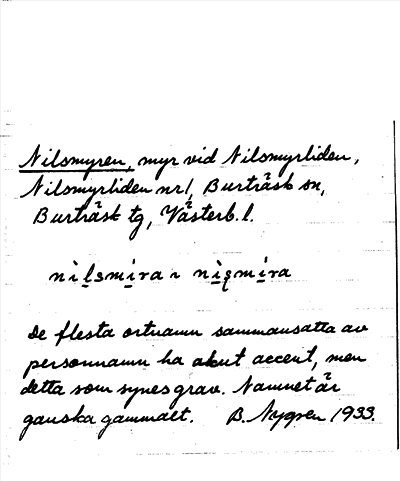 Nilsmyren, myr vid Nilsmyrliden,
Nilsmyrliden nr 1, Burträsk sn,
Burträsk tg, Västerb. l.
De flesta ortnamn sammansatta av
personnamn ha akut accent, men
detta som synes grav. Namnet är
ganska gammalt. B. Nygren 1933.